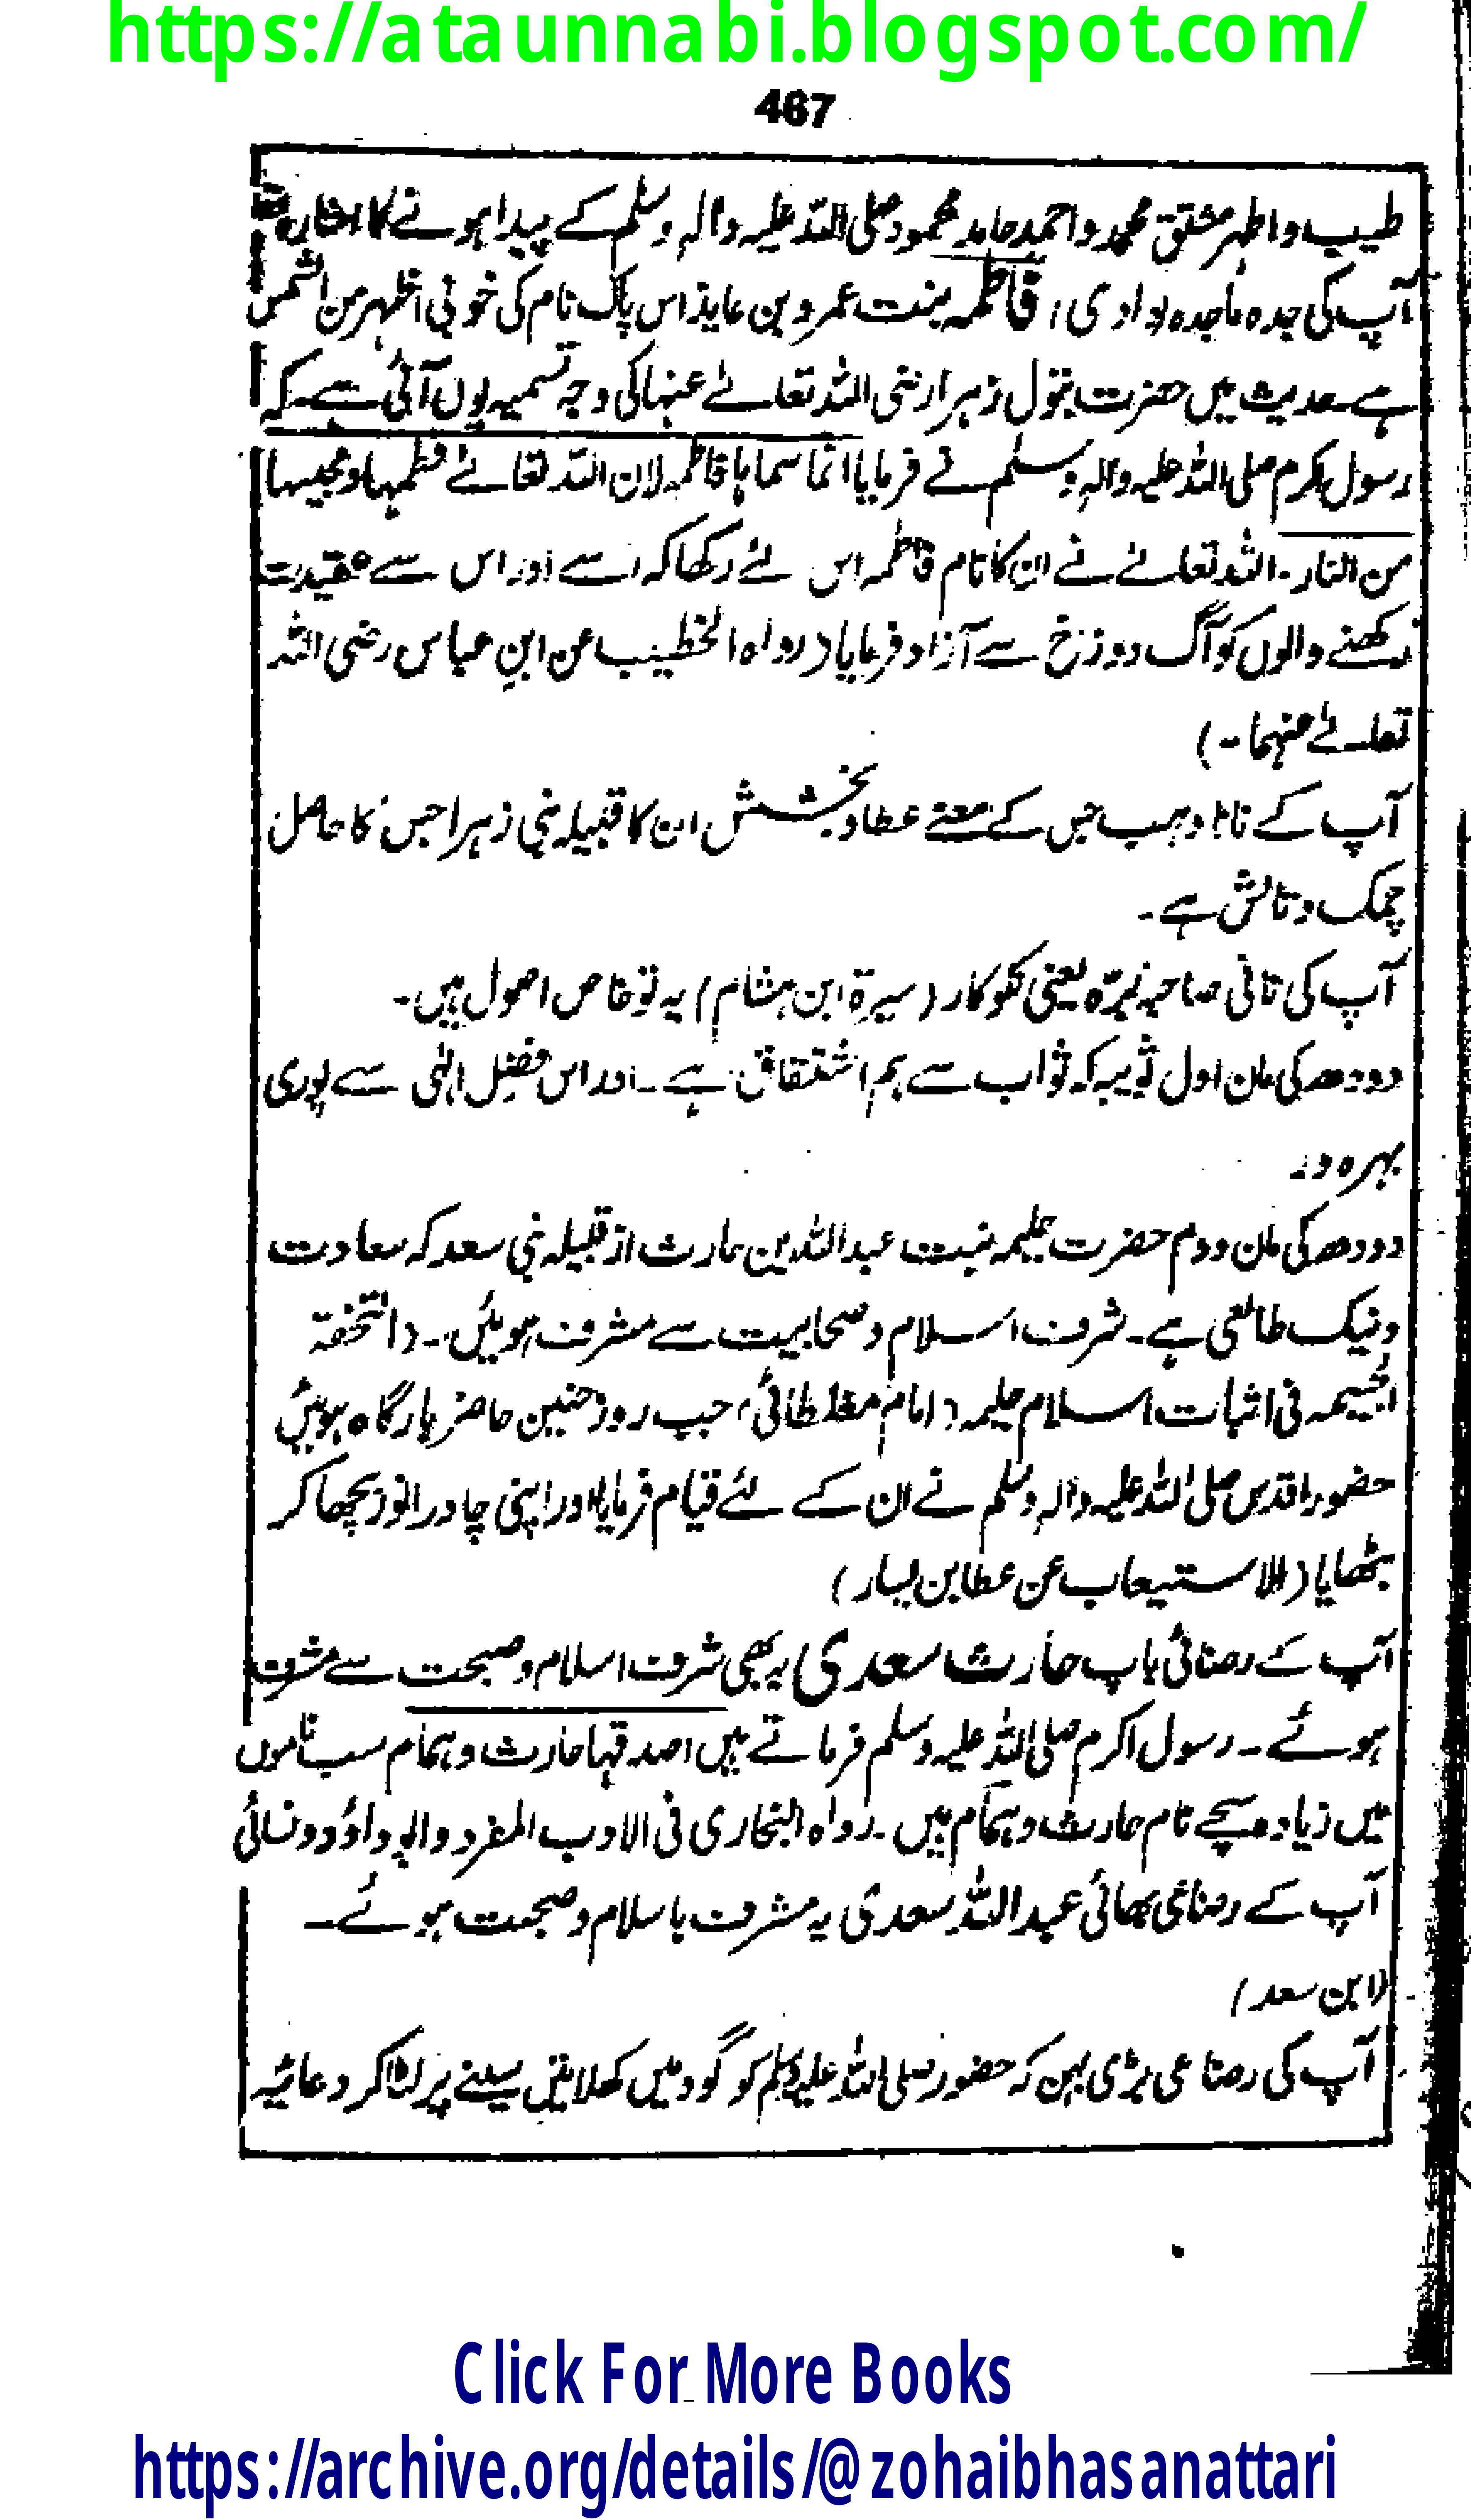 https://ataunnabi.blogspot.com/
467
طیب و اطہر مشتق محمد و احمد حامد محمود صلی اللہ علیہ والہ وسلم کے پیدا ہونے کا اشارہ
آپ کی جدہ ماجدہ (دادی) فاطمہ بنت عمرو بن عایذ اس پاک نام کی خوبی اظہر من الشمس
ہے۔ حدیث میں حضرت بتول زہرا رضی اللہ تعالےٰ عنہا کی وجہ تسمیہ یوں آئی ہے۔ کہ
رسول اکرم صلی اللہ علیہ والہ وسلم نے فرمایا انما سماہا فاطمہ لان اللہ تعالےٰ فطمہا و محبیہا
من النار۔ اللہ تعالےٰ نے ان کا نام فاطمہ اس لئے رکھا کہ اسے اور اس سے عقیدت
رکھنے والوں کو آگ دوزخ سے آزاد فرمایا (رواہ الخطیب عن ابن عباس رضی اللہ
تعالےٰ عنہما۔)
آپ کے نانا وہب جس کے معنے عطا و بخشش ان کا قبیلہ بنی زہرا جس کا حاصل
چمک و تالش ہے۔
آپ کی نانی صاحبہ برّہ یعنی نکوکار (سیرۃ ابن ہشام) یہ تو خاص اصول ہیں۔
دودھ کی ماں اول ثویبہ کہ ثواب سے ہم اشتقاق ہے۔ اور اس فضل الٰہی سے پوری
بہرہ ور۔
دودھ کی ماں دوم حضرت حلیمہ بنت عبداللہ بن حارث از قبیلہ بنی سعد کہ سعادت
و نیک طالعی ہے۔ شرف اسلام و صحابیت سے مشرف ہوئیں۔ (التحفۃ
الجسیمہ فی اثبات اسلام حلیمہ (امام مغلطائی) جب روز حنین حاضر بارگاہ ہوئیں
حضور اقدس صلی اللہ علیہ والہ وسلم نے ان کے لئے قیام فرمایا اور اپنی چادر انور بچھا کر
بٹھایا (الاستیعاب عن عطا بن یسار)
آپ کے رضائی باپ حارث سعدی یہ بھی شرف اسلام و صحبت سے مشرف
ہوئے۔ رسول اکرم صلی اللہ علیہ وسلم فرماتے ہیں اصدقہا حارث و ہمام سب ناموں
میں زیادہ سچے نام حارث و ہمام ہیں۔ رواہ البخاری فی الادب المفرد و ابو داؤد و نسائی
آپ کے رضاعی بھائی عبداللہ سعدی یہ مشرف باسلام و صحبت ہوئے۔
(ابن سعد)
آپ کی رضاعی بڑی بہن کہ حضور صلی اللہ علیہ وسلم کو گود میں کھلاتیں سینے پر لٹا کر دعائیہ
Click For More Books
https://archive.org/details/@zohaibhasanattari